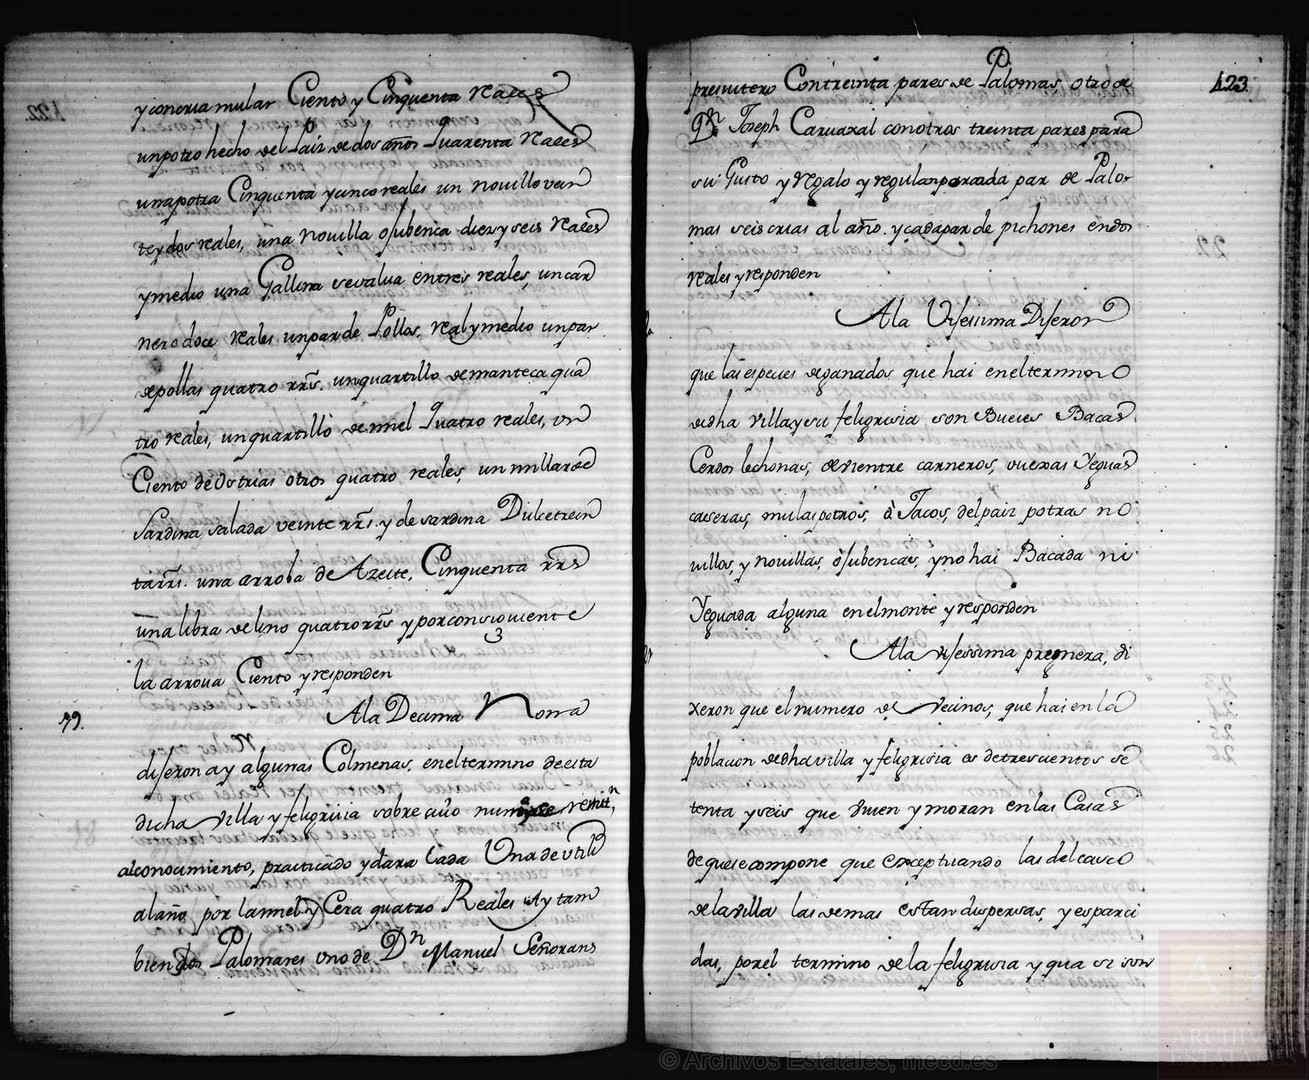 y con cria mular Ciento y Cinquenta reales
un potro hecho del Pais de dos años Quarenta reales
una potra Cinquenta y cinco reales un novillo vein
te y dos reales, una novilla o jubenca diez y seis reales
y medio una Gallina se valua en tres reales, un car
nero doce reales un par de Pollos, real y medio un par
de pollas quatro rrs. un quartillo de manteca qua
tro reales, un quartillo de miel Quatro reales, un
Ciento de Ostrias otros quatro reales, un millar de
Sardina salada veinte rrs. y de sardina Dulce trein
ta rrs. una arroba de Azeite, Cinquenta rrs
una libra de lino quatro rrs y por consiguiente
la arroua Ciento y responden
19. A la Decima Nona
dijeron ay algunas Colmenas, en el termino de esta
dicha villa y feligrisia sobre cuio remitn
al conocimiento, practicado y dara Cada Una de util
al año por la miel y Cera quatro Reales Ay tam
bien dos Palomares uno de Dn Manuel Señorans
123
presvitero Con treinta pares de Palomas otro de
Dn Joseph Caruaxal con otros treinta pares para
su Gusto y regalo y regulan por cada par de Palo
mas seis crias al año. y cada par de pichones en dos
reales y responden
A la Visessima Dijeron
que las especies de ganados que hai en el termino
de dha villa y su feligrisia son Bueies Bacas
Cerdos lechonas, de vientre carneros, ouexas Yeguas
caseras, mulas potros, ò Jacos, del pais potras no
villos, y novillas, ò jubencas, y no hai Bacada ni
Yeguada alguna en el monte y responden
A la visessima primera, di
xeron que el numero de Vecinos, que hai en la
poblacion de dha villa y feligrisia es de trescientos se
tenta y seis que viuen y moran en las Casas
de que se compone que exceptuando las del casco
de la villa las demas estan dispersas, y esparci
das, por el termino de la feligrisia y qua si son
© Archivos Estatales, mecd.es
ARCHIVOS
ESTATALES